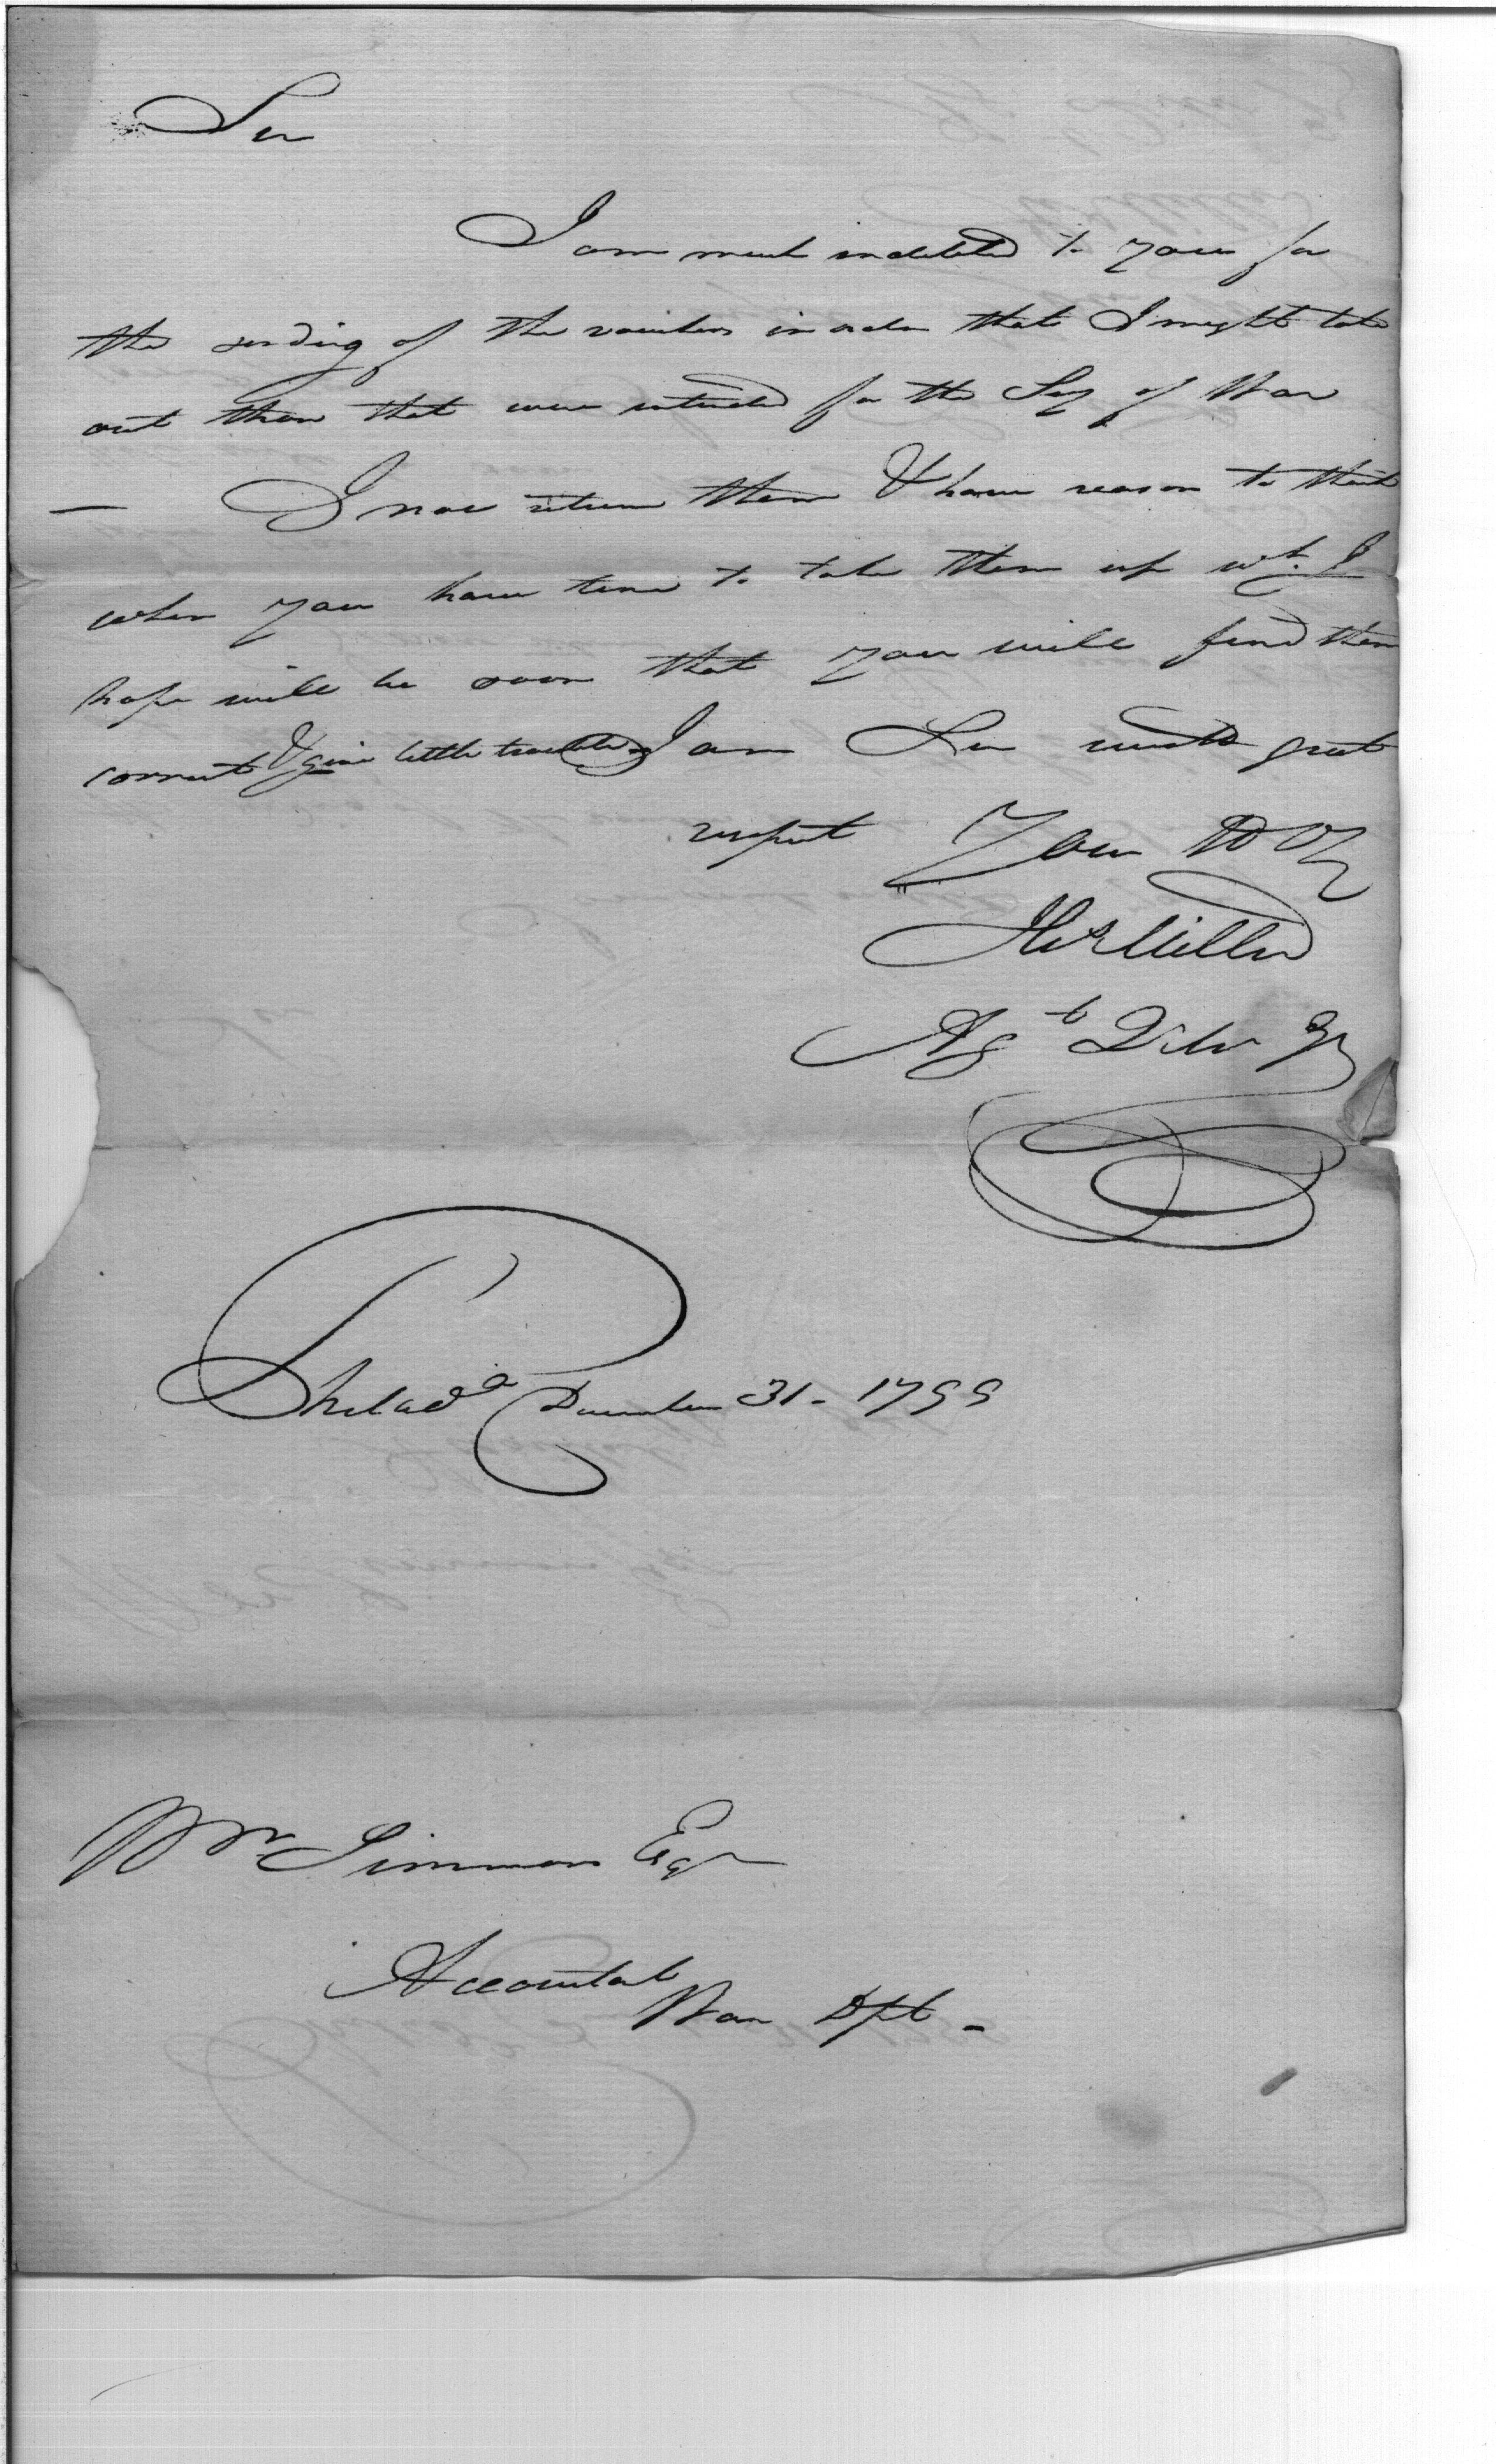 Sir
I am much indebted to you for
the sending of the vouchers in order that I might take
out them that were intended for the Secy of War
— I now return them & have reason to think
when you have time to take them up wh. I
hope will be soon that you will find them
correct & give little trouble I am Sir with great
respect Your
Hy Miller
Agt
Philada December 31 - 1799
Wm Simmons Esqr
Accountant
War Dpt -